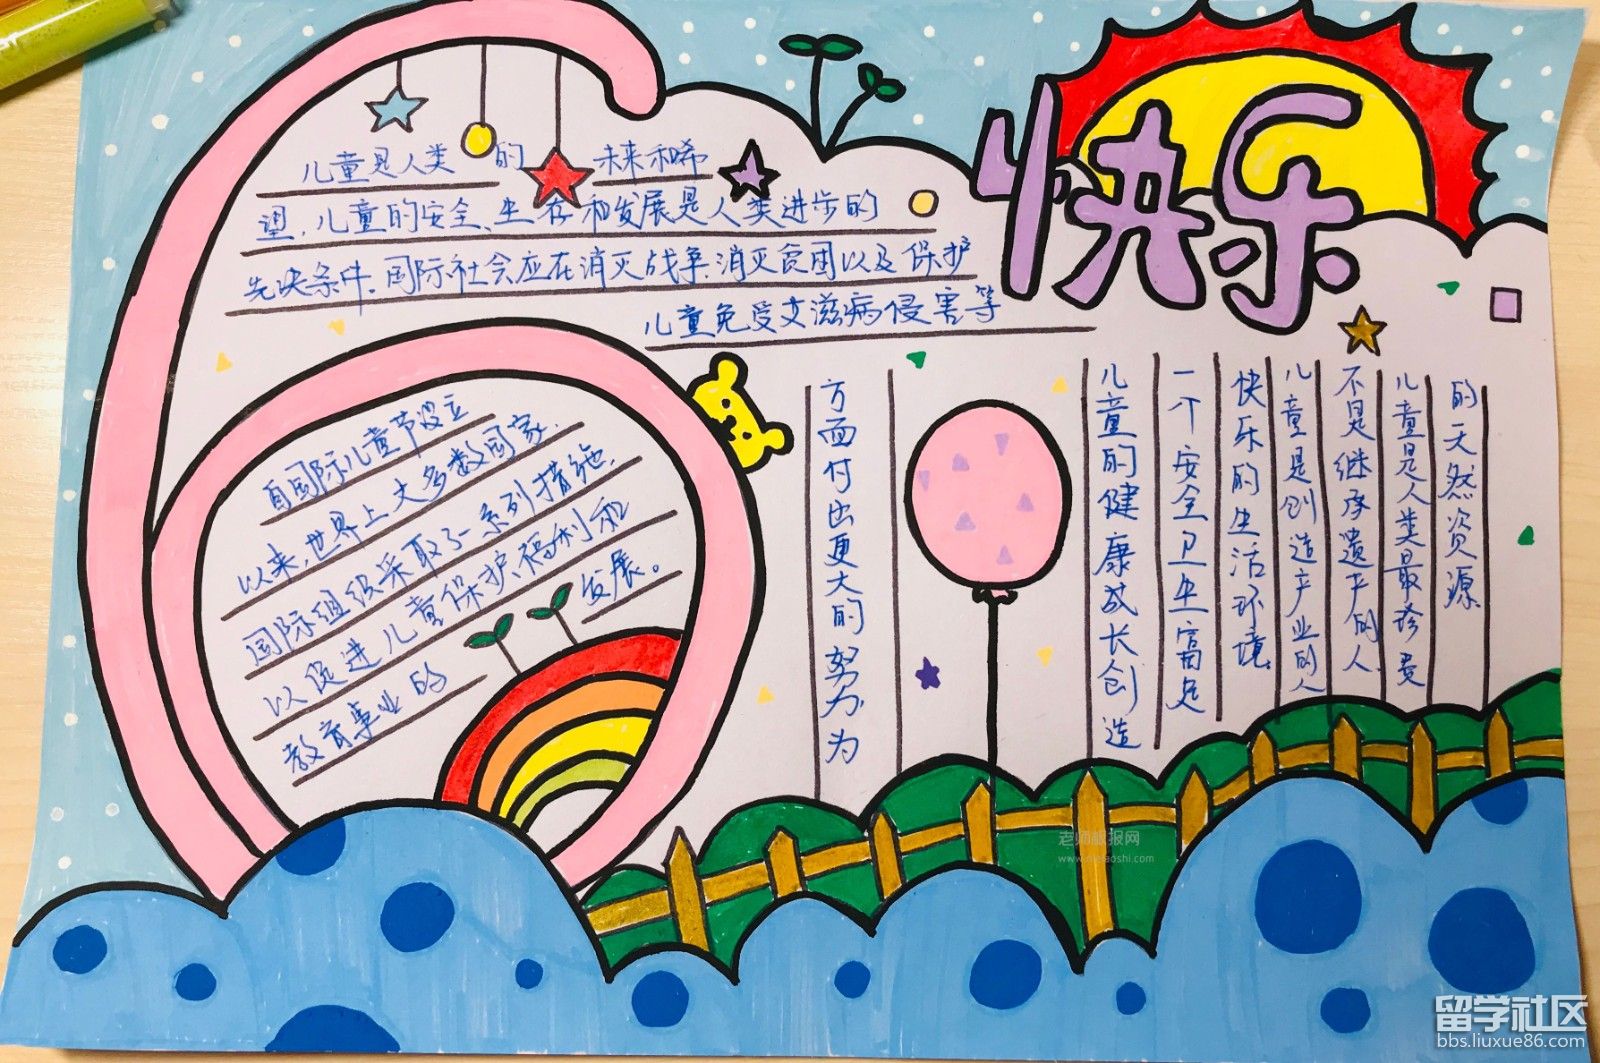 快乐
儿童是人类的未来和希
望,儿童的安全、生存和发展是人类进步的
先决条件、国际社会应在消灭战争、消灭贫困以及保护
儿童免受艾滋病侵害等
方面付出更大的努力,为
儿童的健康成长创造
一个安全卫生富足
快乐的生活环境,
儿童是创造产业的人
不是继承遗产的人
儿童是人类最珍贵
的天然资源
自国际儿童节设立
以来,世界上大多数国家,
国际组织采取了一系列措施,
以促进儿童保护、福利和
教育事业的发展。
老师板报网
留学社区
bbs.liuxue86.com